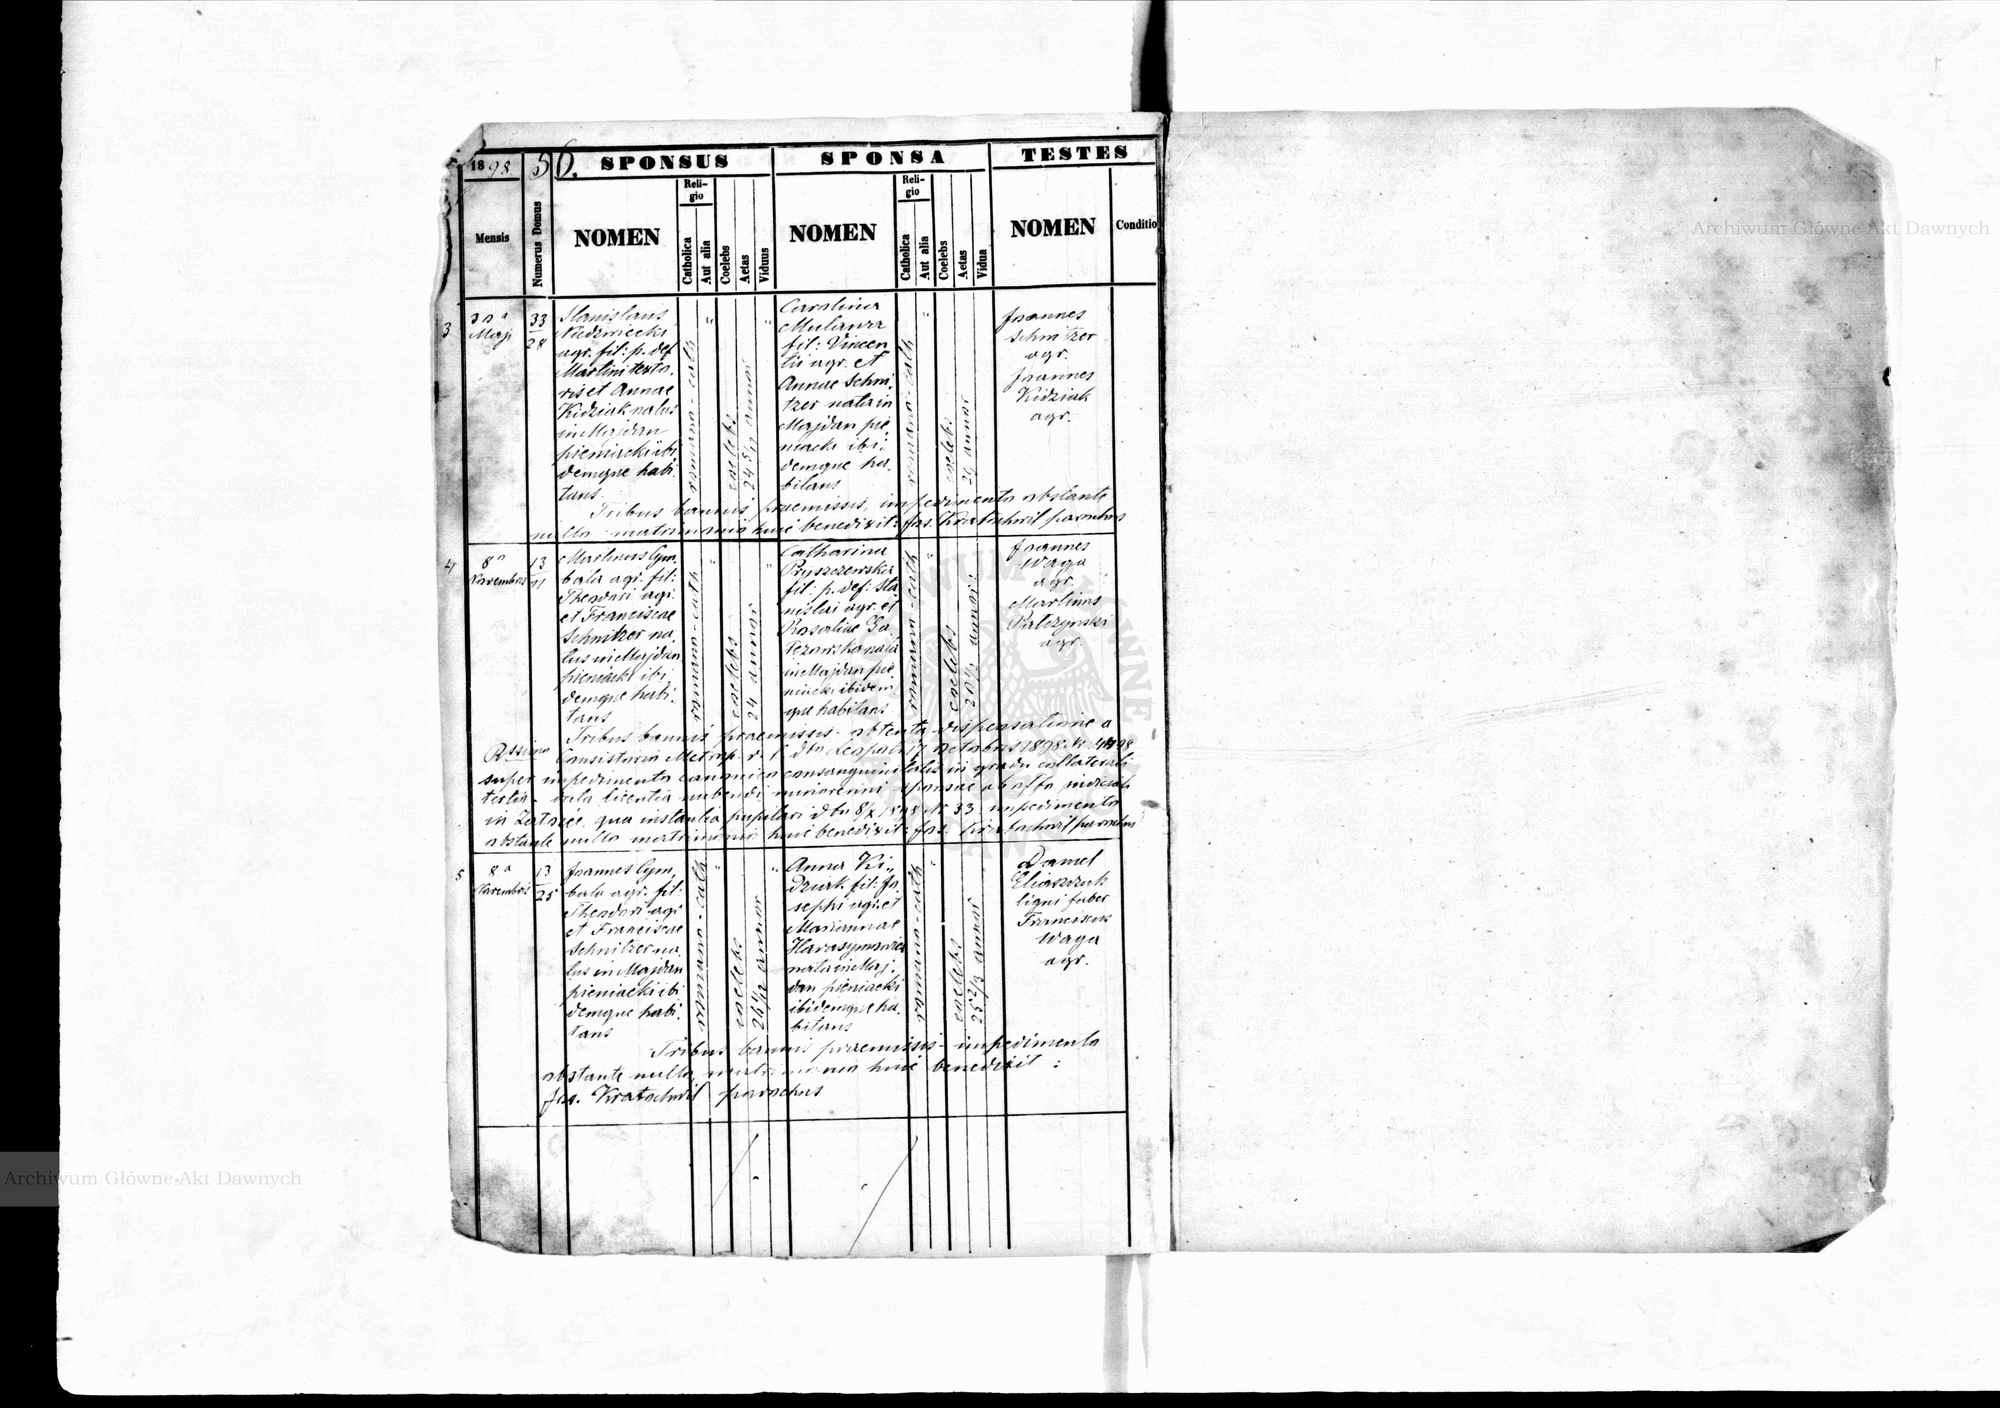 1898.
56.
SPONSUS
SPONSA
TESTES
Mensis
Numerus Domus
NOMEN
Religio
Catholica
Aut alia
Coelebs
Aetas
Viduus
NOMEN
Religio
Catholica
Aut alia
Coelebs
Aetas
Vidua
NOMEN
Conditio
3
Maji
33
28
Stanislaus
Niedzwiecki
agr. fil: p. def
Martini texto.
ris et Annae
Kidziak natus
in Majdan
pieniacki ibi.
demque habi.
tans
romano-cath
coelebs
Carolina
Mulawa
fil: Vincen
tii agr. et
Annae Schni.
tzer nata in
Majdan pie.
niacki ibi.
demque ha.
bitans
romano-cath
coelebs
Joannes
Schnitzer
agr.
Joannes
Kidziak
agr.
Tribus bannis praemissis, impedimento obstante
nullo matrimonio huic benedixit: Jos. Kratochwil parochus
4
8a
Novembris
13
11
Martinus Cym.
bala agr. fil:
Theodori agr.
et Franciscae
Schnitzer na.
tus in Majdan
pieniacki ibi.
demque habi.
tans
romano-cath
coelebs
24 annor
Catharina
Pryszczewska
fil: p. def. Sta.
nislai agr. et
Rosaliae
nata
in Majdan pie
niacki ibidem
que habitans
romano-cath
coelebs
20½ annor
Joannes
Waga
agr.
Martinus
Palczynski
agr.
Tribus bannis praemissis - obtenta dispensatione a
Rssimo Consistorio Metrop. r. l. dto Leopoli 17 Octobris 1898 N.
super impedimento canonico consanguinitatis in gradu collaterali
tertio - licentia nubendi minorenni sponsae ab offo judiciali
in qua instantia pupilari dto 8/X 1898 Nr 33 impedimento
obstante nullo matrimonio huic benedixit: Jos. Kratochwil parochus
5
8a
Novembris
13
25
Joannes Cym.
bala agr. fil:
Theodori agr
et Franciscae
Schnitzer na.
tus in Majdan
pieniacki ibi
demque habi.
tans
romano-cath
coelebs
Anna Ki„
dziak fil: Jo.
sephi agr. et
Mariannae
Harasymowicz
nata in Maj.
dan pieniacki
ibidemque ha.
bitans
romano-cath
coelebs
25 2/3 annor
Daniel
Eliaszczuk
ligni faber
Franciscus
Waga
agr.
Tribus bannis praemissis - impedimento
obstante nullo matrimonio huic benedixit:
Jos. Kratochwil parochus
Archiwum Główne Akt Dawnych
Archiwum Główne-Akt Dawnych